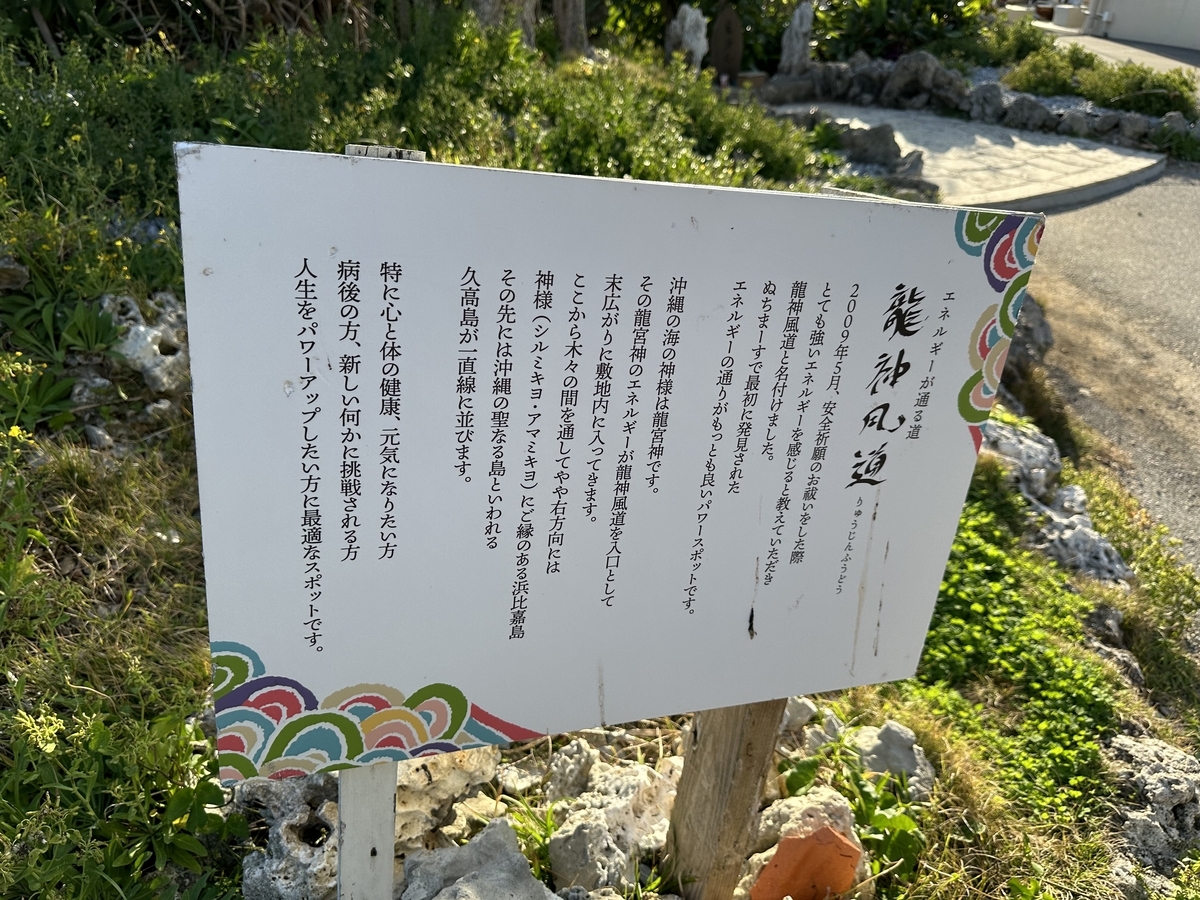 エネルギーが通る道
龍神風道
りゅうじんふうどう
2009年5月、安全祈願のお祓いをした際
とても強いエネルギーを感じると教えていただき
龍神風道と名付けました。
ぬちまーすで最初に発見された
エネルギーの通りがもっとも良いパワースポットです。
沖縄の海の神様は龍宮神です。
その龍宮神のエネルギーが龍神風道を入口として
末広がりに敷地内に入ってきます。
ここから木々の間を通してやや右方向には
神様（シルミキヨ・アマミキヨ）にご縁のある浜比嘉島
その先には沖縄の聖なる島といわれる
久高島が一直線に並びます。
特に心と体の健康、元気になりたい方
病後の方、新しい何かに挑戦される方
人生をパワーアップしたい方に最適なスポットです。